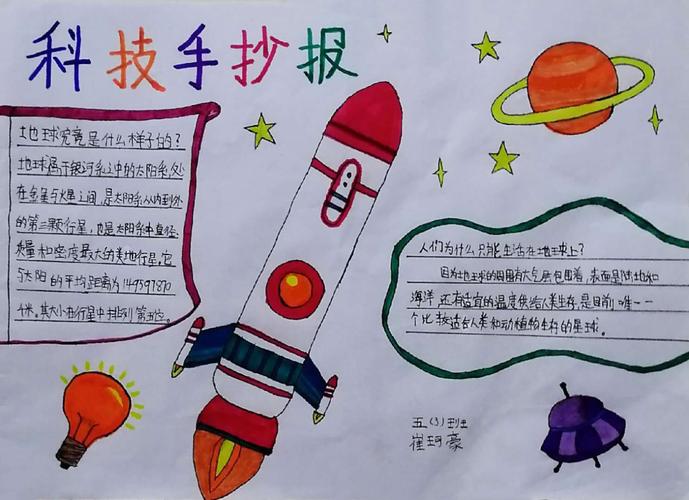 科技手抄报
地球究竟是什么样子的?
地球属于银河系之中的太阳系,处
在金星与火星之间,是太阳系从内到外
的第三颗行星,也是太阳系中直径
质量和密度最大的类地行星。它
与太阳的平均距离为149597870
千米。其大小在行星中排列第五位。
人们为什么只能生活在地球上?
因为地球的周围有大气层包围着,表面是陆地和
海洋,还有适宜的温度供给人类生存,是目前唯一一
个比较适合人类和动植物生存的星球。
五(3)班
崔珂豪